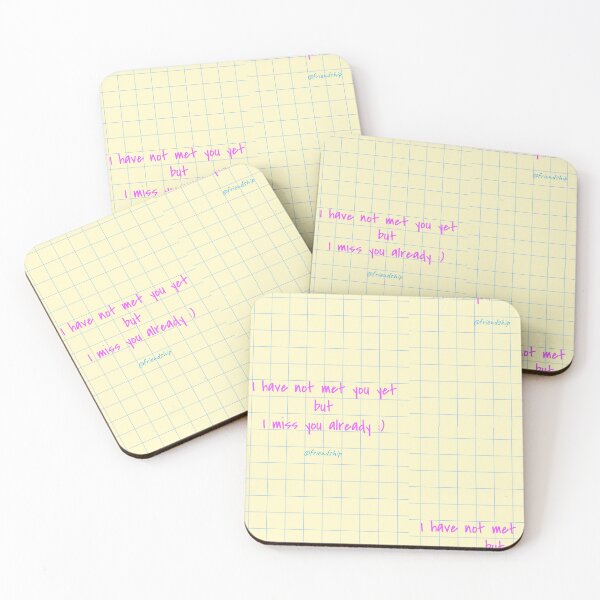 @friendship
I have not met you yet
but
I miss
@friendship
I have not met you yet
but
I miss you already :)
@friendship
not met
but
@friendship
I have not met you yet
but
I miss you already :)
@friendship
@friendship
I have not met you yet
but
I miss you already :)
@friendship
I have not met
but